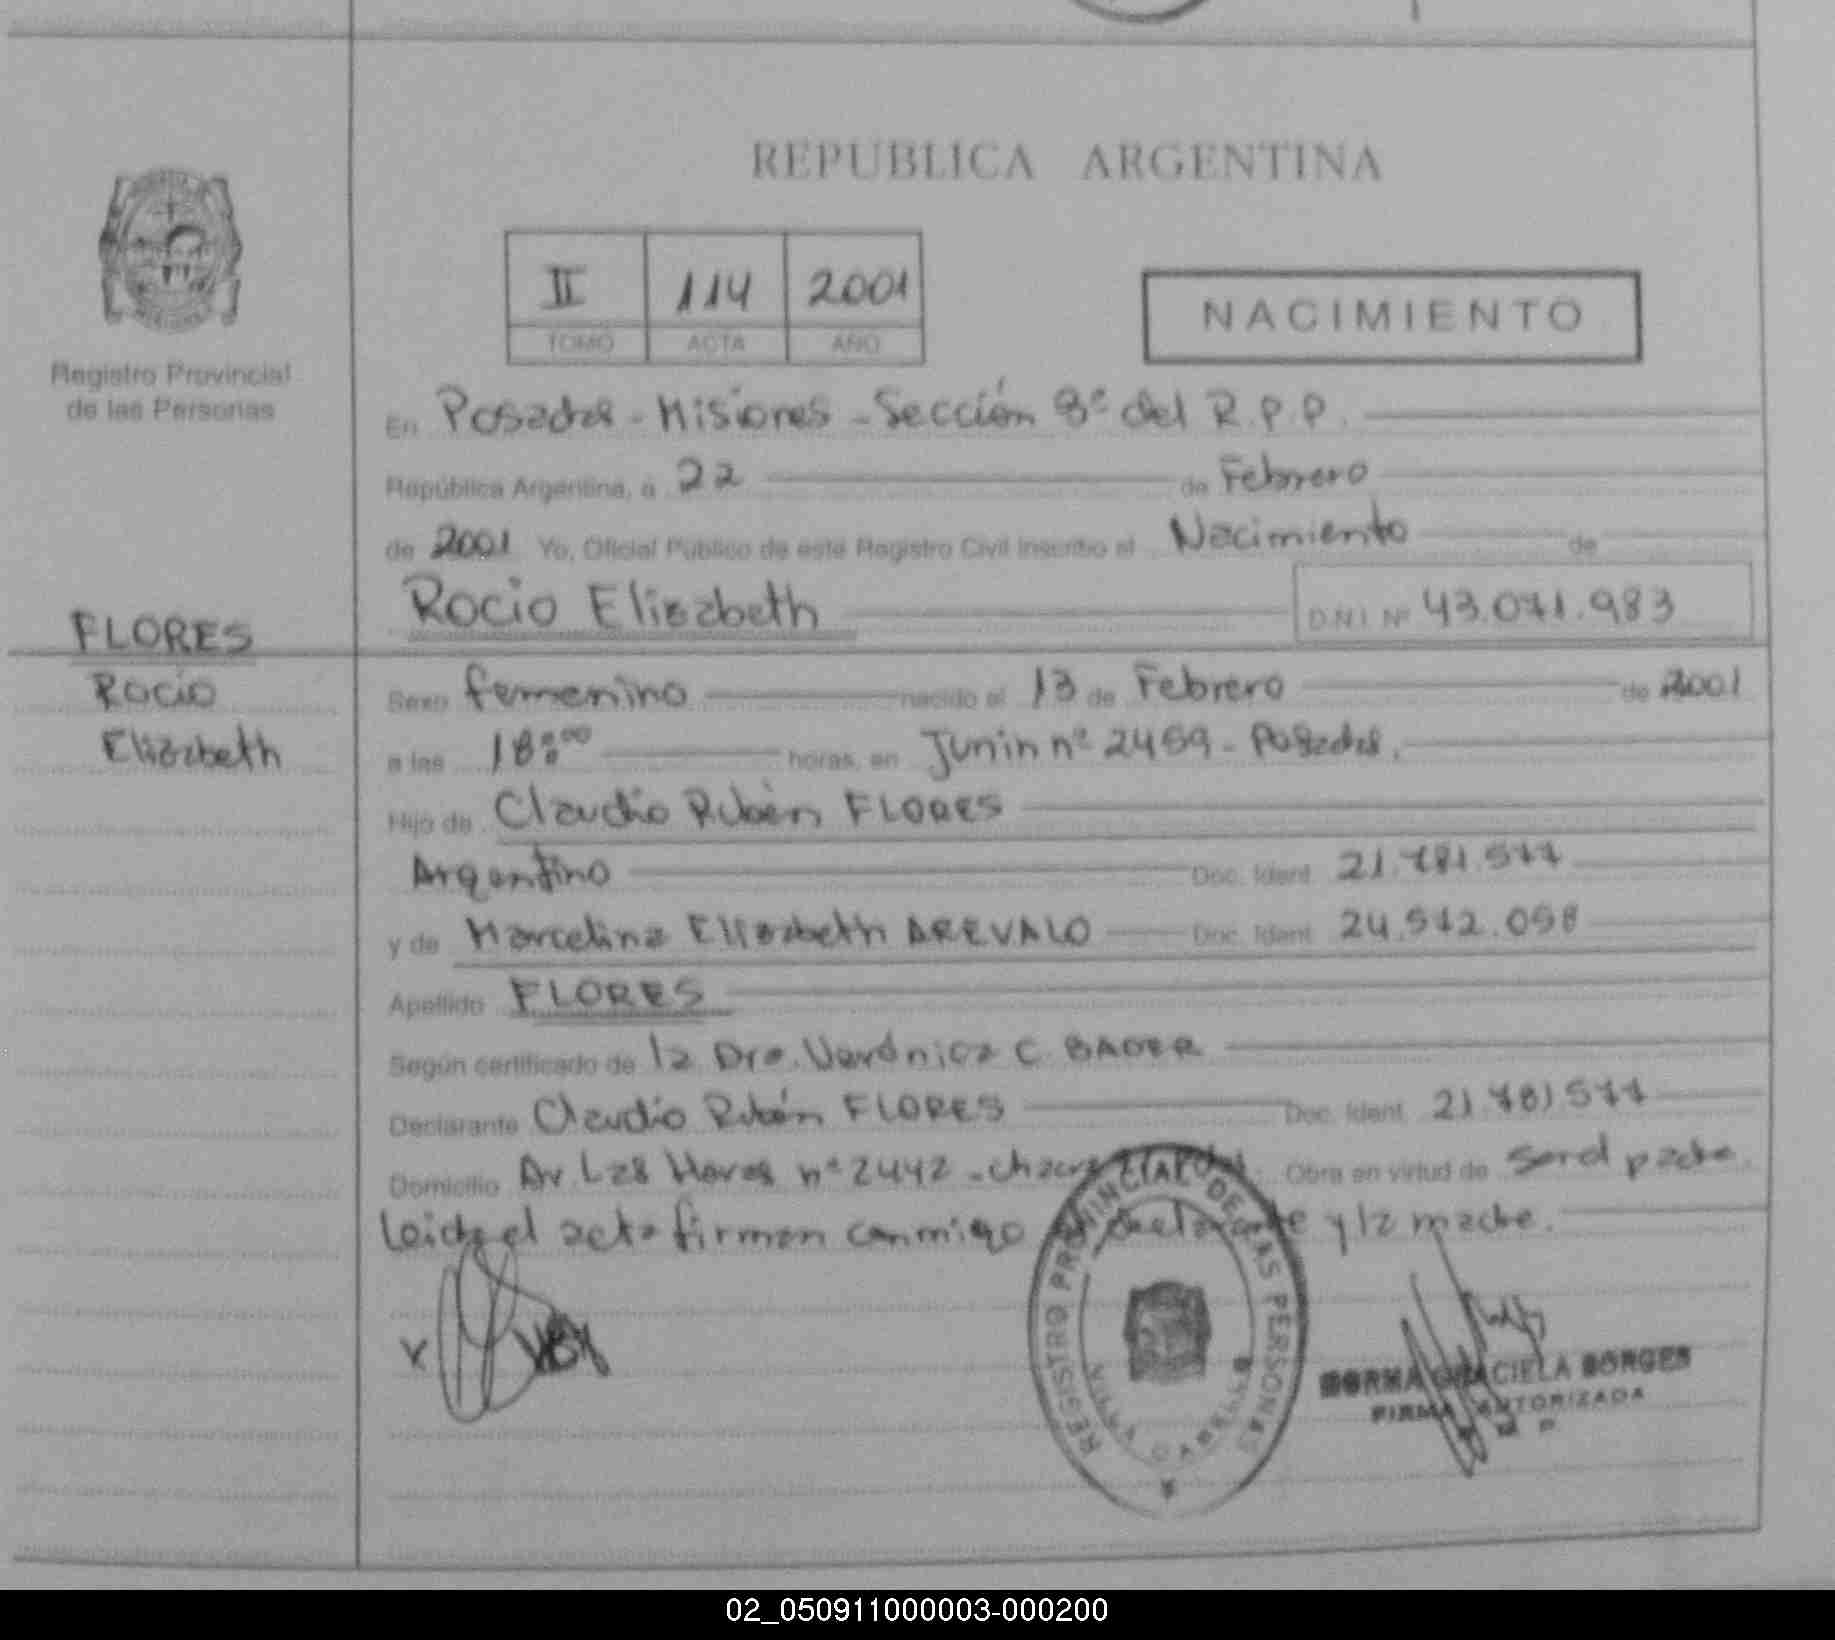 REPUBLICA ARGENTINA
II 114 2001
TOMO ACTA AÑO
NACIMIENTO
Registro Provincial
de las Personas
En Posadas - Misiones - Sección 8º del R.P.P.
República Argentina, a 22 de Febrero
de 2001 Yo, Oficial Público de este Registro Civil inscribo el Nacimiento de
Rocio Elizabeth D.N.I. Nº 43.071.983
FLORES
Rocio
Elizabeth
Sexo femenino nacido el 13 de Febrero de 2001
a las 18:00 horas, en Junin nº 2459 - Posadas.
Hijo de Claudio Rubén FLORES
Argentino Doc. Ident. 21.781.577
y de Marcelina Elizabeth AREVALO Doc. Ident. 24.572.058
Apellido FLORES
Según certificado de la Dra. Verónica C. BAUER
Declarante Claudio Rubén FLORES Doc. Ident. 21.781577
Domicilio Av. Las Heras nº 2442 - Obra en virtud de ser el padre.
Leida el acta firman conmigo el declarante y la madre.
REGISTRO PROVINCIAL DE LAS PERSONAS
VILLA CABELLO
NORMA GRACIELA BORGES
FIRMA AUTORIZADA
02_050911000003-000200